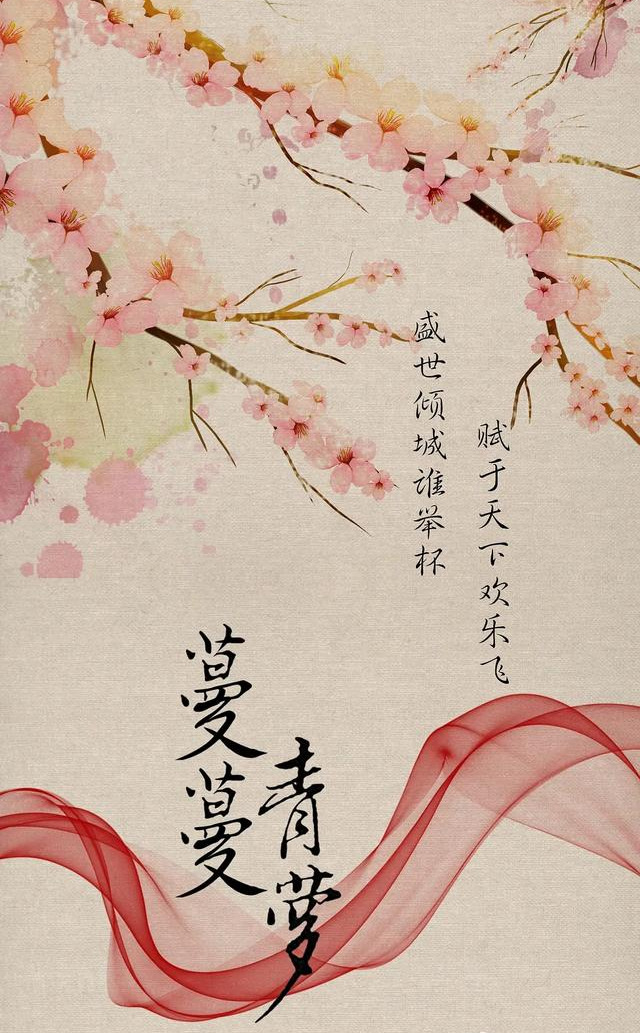 盛世倾城谁举杯
赋于天下欢乐飞
蔓蔓
青萝